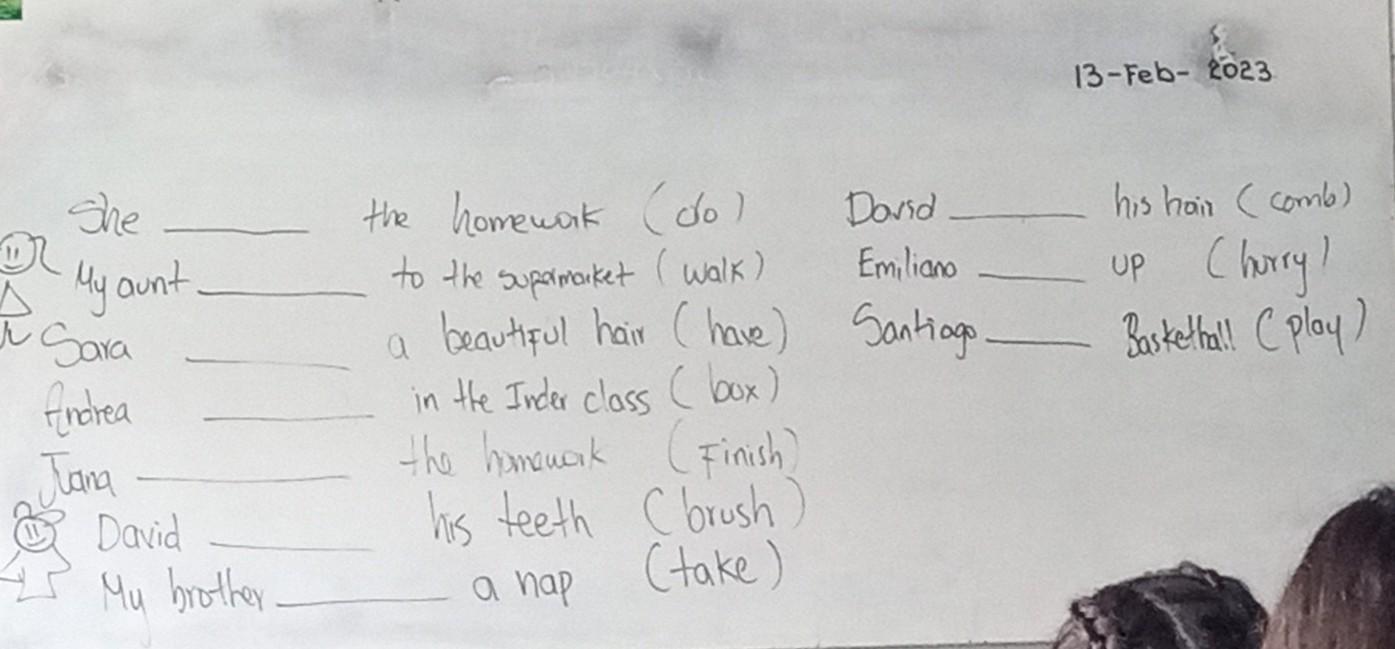 13-Feb-2023
She ______ the homework (do)
My aunt ______ to the supermarket (walk)
Sara ______ a beautiful hair (have)
Andrea ______ in the Inder class (box)
Juana ______ the homework (Finish)
David ______ his teeth (brush)
My brother ______ a nap (take)
David ______ his hair (comb)
Emiliano ______ up (hurry)
Santiago ______ Basketball (play)